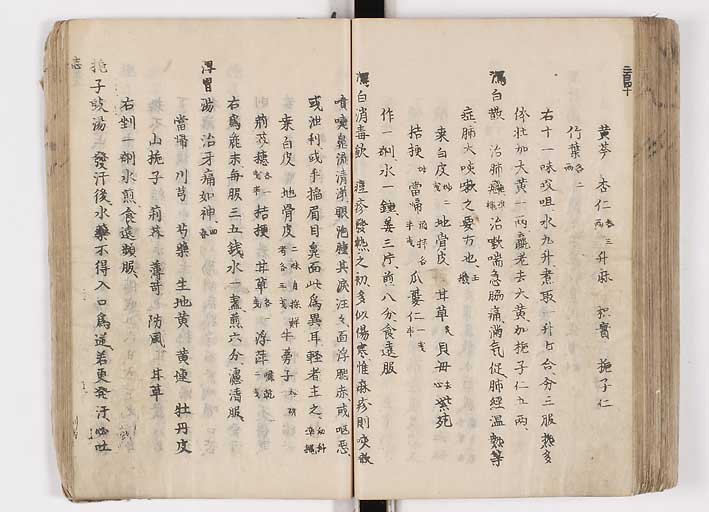 黄芩 杏仁 升麻 枳實 梔子仁
竹葉
右十一味㕮咀水九升煮取一升七合分三服熱多
体壮加大黄一兩羸老去大黄加梔子仁五兩
瀉白散 治肺癰 治嗽喘急脇痛満気促肺経温熱等
症肺火咳嗽之要方也
桑白皮 地骨皮 甘草 貝母 紫苑
桔梗 當帰 瓜蔞仁
作一剤水一鍾姜三片煎八分食遠服
瀉白消毒飲 痘疹發熱之初多似傷寒惟麻疹則咳嗽
噴嚔鼻流清涕眼胞腫其淚汪々面浮腮赤或嘔悪
或泄利或手搯眉目鼻面此為異耳軽者主之
桑白皮 地骨皮 牛蒡子
荊芥穂 桔梗 甘草 浮萍
右為麁末每服三五銭水一盞煎六分濾清服
胃湯 治牙痛如神
當帰 川芎 芍薬 生地黄 黄連 牡丹皮
山梔子 荊芥 薄荷 防風 甘草
右剉一剤水煎食遠頻服
梔子豉湯 發汗後水藥不得入口為逆若更発汗必吐